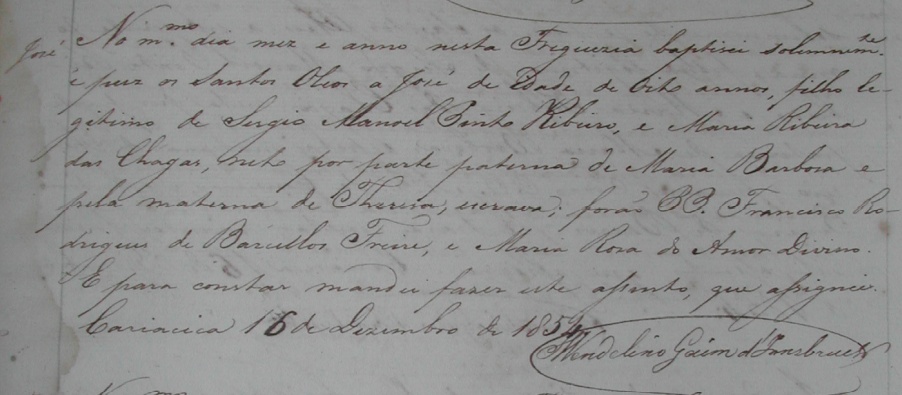 José
No m.mo dia mez e anno nesta Freguezia baptisei solemnem.te
e puz os Santos Oleos a José de Edade de oito annos, filho le-
gitimo de Sergio Manoel Pinto Ribeiro, e Maria Ribeira
das Chagas, neto por parte paterna de Maria Barbosa e
pela materna de Theresa, escrava; forão PP. Francisco Ro-
drigues de Barcellos Freire, e Maria Rosa do Amor Divino.
E para constar mandei fazer este assento, que assignei.
Cariacica 16 de Dezembro de 1854
d'Innsbruck